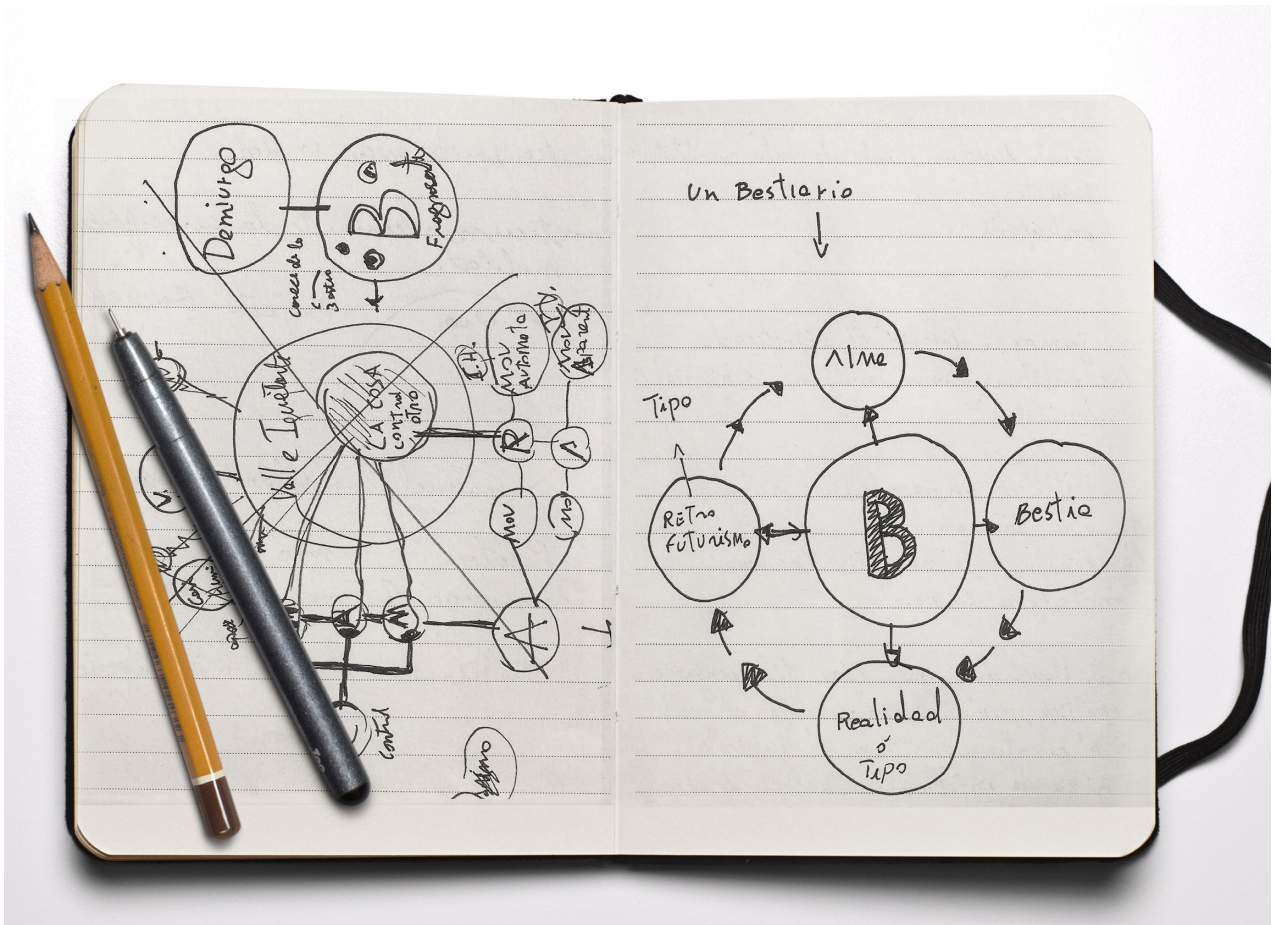 Demiurgo
B
Fragmento
carece de lo
Valle Inquietante
LA COSA
control
otro
I.H.
MOV
Autómata
I.V.
MOV
Aparent
R
A
MOV
MOV
V.
A
M
A
control
Un Bestiario
Alma
Tipo
RETRO
FUTURISMO
B
Bestia
Realidad
ó
Tipo